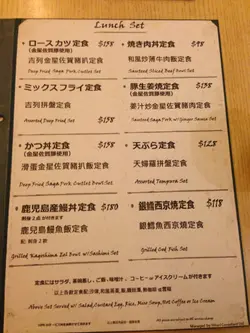 Lunch Set
ロース カツ定食 $138
(金星佐賀豚使用)
吉列金星佐賀豬扒定食
Deep Fried Saga Pork Cutlet Set
焼き肉丼定食 $98
和風炒薄牛肉飯定食
Sauteed Sliced Beef Bowl Set
ミックスフライ定食 $138
吉列拼盤定食
Assorted Deep Fried Set
豚生姜焼定食 $138
(金星佐賀豚使用)
薑汁炒金星佐賀豬肉定食
Sauteed Saga Pork w/ Ginger Sauce Set
かつ丼定食 $138
(金星佐賀豚使用)
滑蛋金星佐賀豬扒飯定食
Deep Fried Saga Pork Cutlet Bowl Set
天ぷら定食 $128
天婦羅拼盤定食
Assorted Tempura Set
鹿児島産鰻丼定食 $188
鹿兒島鰻魚飯定食
Grilled Kagoshima Eel Bowl w/ Set
銀鱈西京焼定食 $118
銀鱈魚西京燒定食
Grilled Cod Fish Set
定食にはサラダ、茶碗蒸し、ご飯、味噌汁、コーヒー or アイスクリームが付きます。
Above Set Served w/ Salad, Custard Egg, Rice, Miso Soup, Hot Coffee or Ice Cream